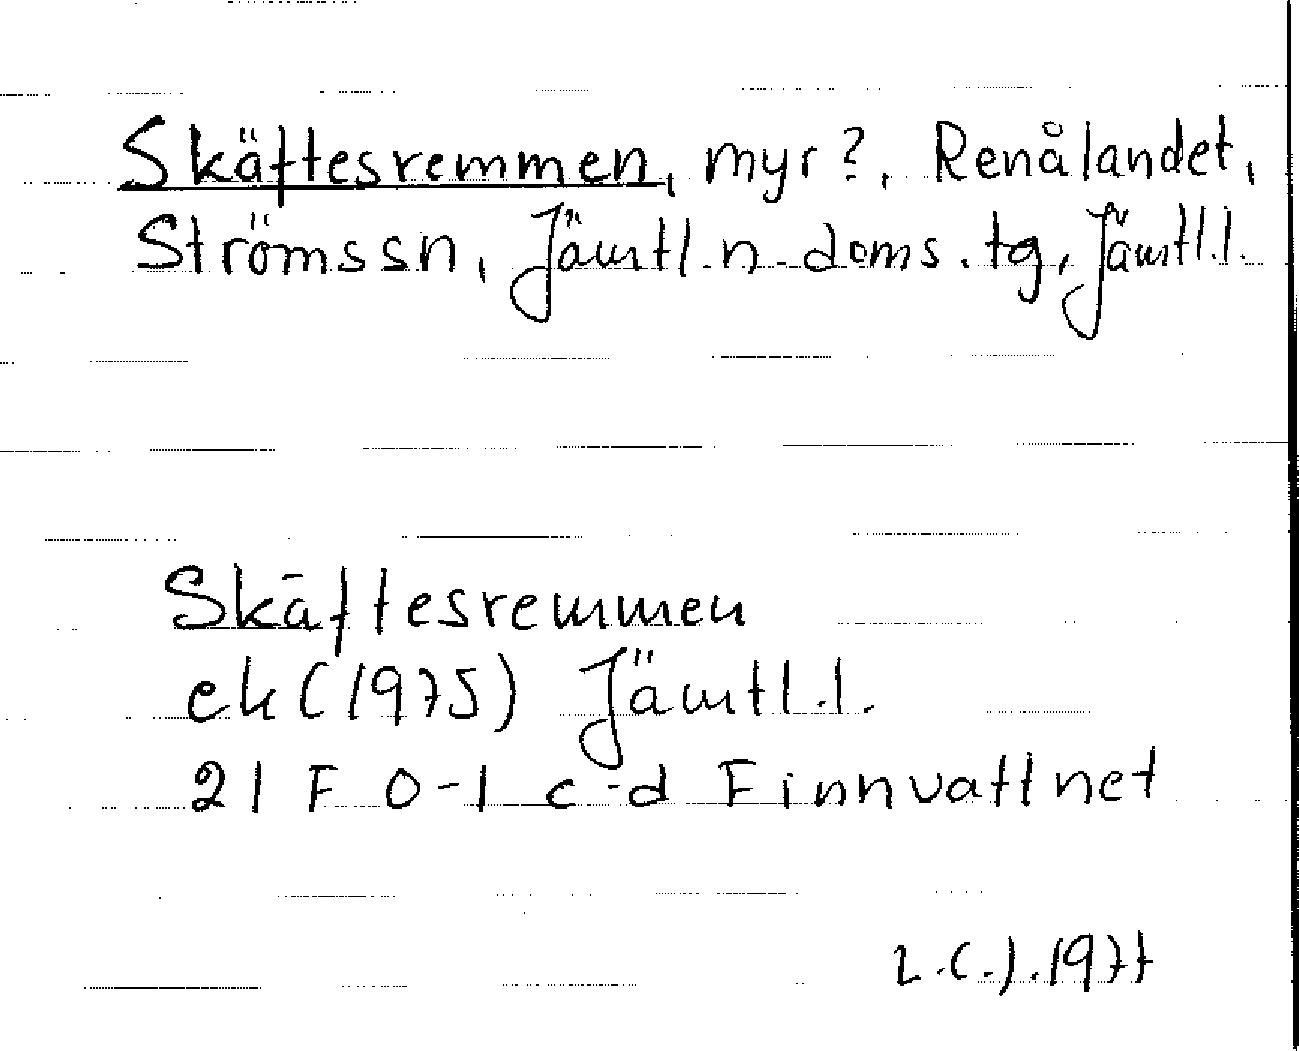 Skäftesremmen, myr?, Renålandet,
Ströms sn, Jämtl. n. doms. tg, Jämtl.l.
Skäftesremmen
ek (1975) Jämtl.l.
21 F 0-1 c-d Finnvattnet
L.C.J. 1977